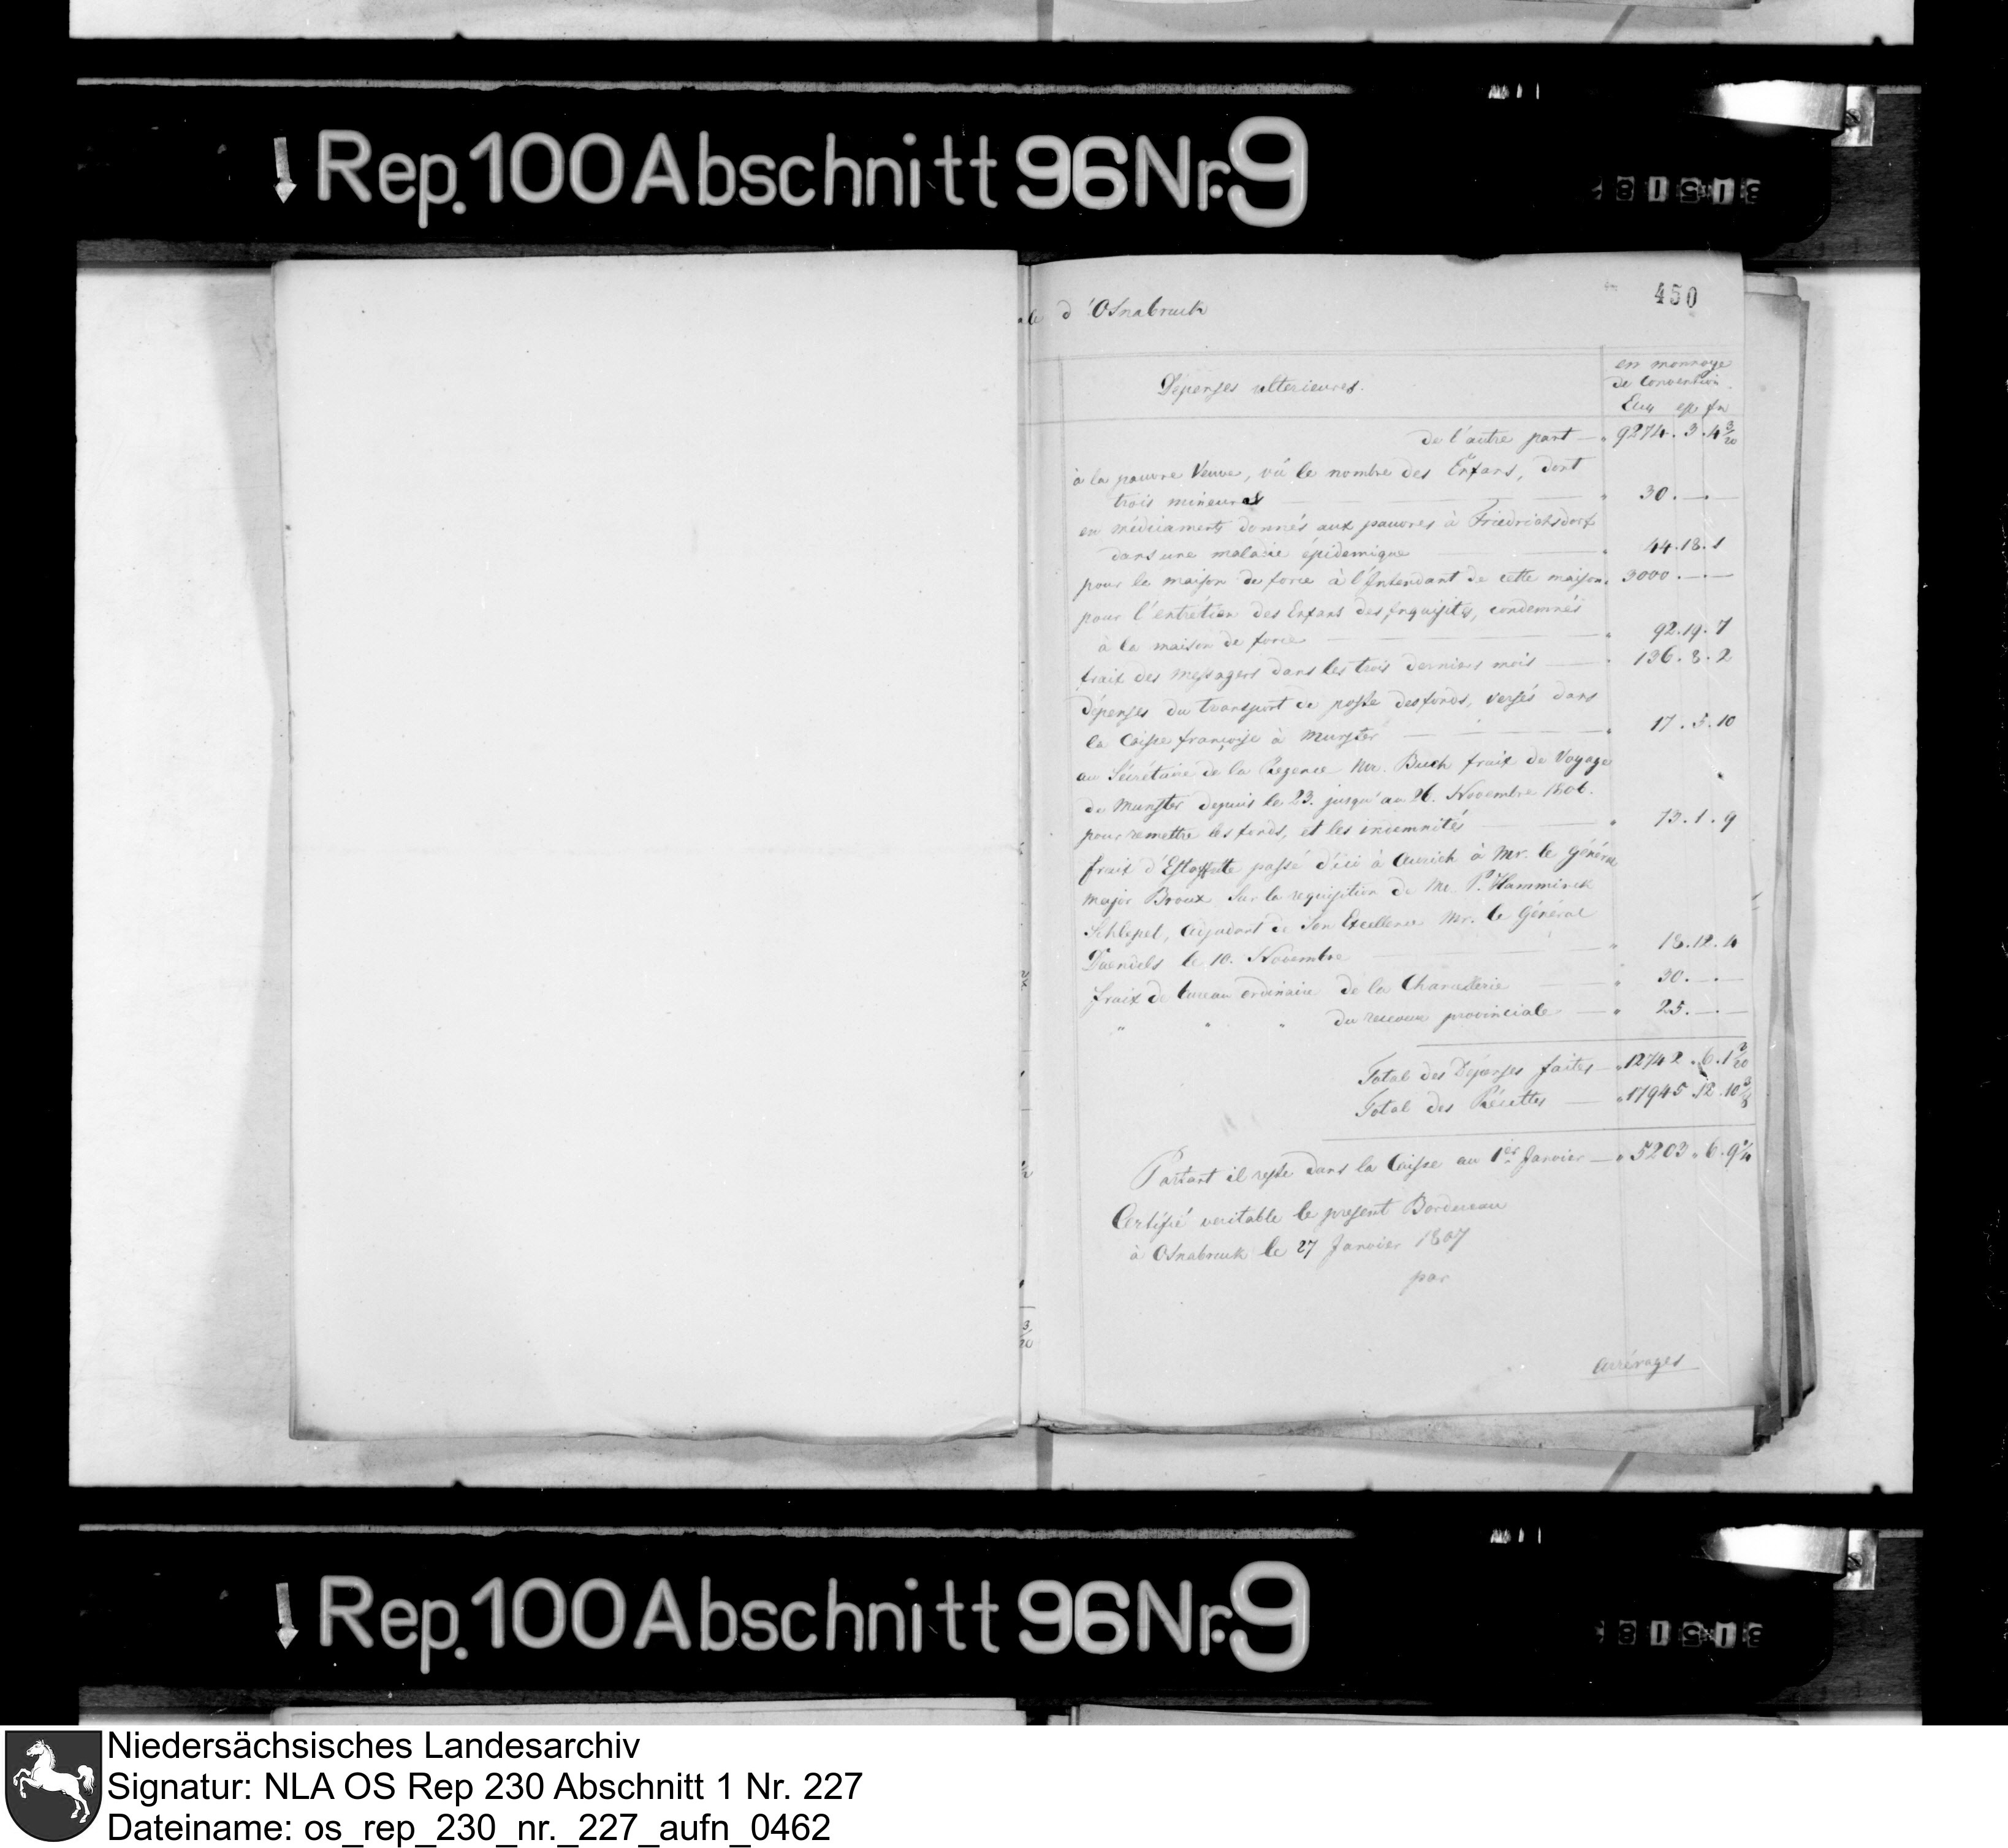 Rep. 100 Abschnitt 96 Nr. 9
450
d'Osnabruck
Dépenses ulterieures.
en monnoye
de Convention
Ecus
de l'autre part — 9274. 3. 4 3/20
à la pauvre Veuve, vû le nombre des Enfans, dont
trois mineurs — 30. — . —
en médicaments donnés aux pauvres à Friedrichsdorf
dans une maladie épidemique — 44. 18. 1
pour le maison de force à l'Intendant de cette maison. 3000. — . —
pour l'entrétien des Enfans des Inquisits, condemnés
à la maison de force — 92. 19. 7
fraix des messagers dans les trois derniers mois — 136. 8. 2
dépenses du transport de poste des fonds, versés dans
la Caisse françoise à Munster — 17. 5. 10
au Sécrétaire de la Regence Mr. Buch fraix de Voyage
de Munster depuis le 23. jusqu'au 26. Novembre 1806.
pour remettre les fonds, et les indemnités — 73. 1. 9
fraix d'Estaffette passé d'ici à Aurich à Mr. le Général
major Broux, sur la requisition de Mr. P. Hamminck
Schlepel, Adjudant de Son Excellence Mr. le Général
Daendels le 10. Novembre — 18. 12. 4
fraix de bureau ordinaire de la Chancellerie — 30. — . —
" " " du receveur provinciale — 25. — . —
Total des Dépenses faites — 12742. 6. 1 3/20
Total des Récettes — 17945. 12. 10
Partant il reste dans la Caisse au 1er Janvier — 5203. 6. 9 1/4
Certifié veritable le present Bordereau
à Osnabruck le 27 Janvier 1807
par
Arrérages
3/20
Rep. 100 Abschnitt 96 Nr. 9
Niedersächsisches Landesarchiv
Signatur: NLA OS Rep 230 Abschnitt 1 Nr. 227
Dateiname: os_rep_230_nr._227_aufn_0462